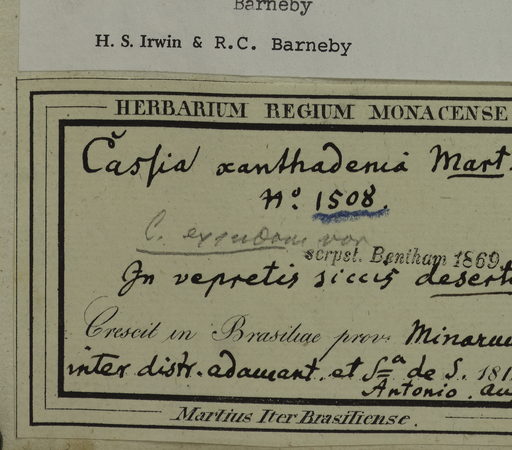 Barneby
H. S. Irwin & R.C. Barneby
HERBARIUM REGIUM MONACENSE
Caſsia xanthadenia Mart.
N.º 1508.
C.
scrpst. Bentham 1869.
In vepretis siccis desert
Crescit in Brasiliae prov. Minarum
inter distr. adamant. et S.ª de S. 181
Antonio. au
Martius Iter Brasiliense.